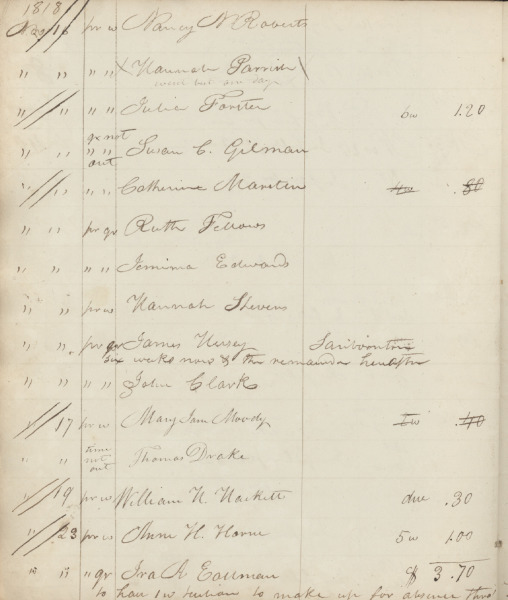 1818
Nov 16 pr w Nancy N Roberts
" " " " Hannah Parrish
went but one day
" " " " Julia Forsten 6w 1.20
qr not
" " " " Susan C. Gilman
out
" " " " Catherine Marstin 4w .80
" " pr qr Ruth Fellows
" " " " Jemima Edwards
" " pr w Hannah Stevens
" " pr qr James Hersey Sanbornton
six weeks now & the remainder hereafter
" " " " John Clark
" 17 pr w Mary Jane Moody 2w .40
time
" " not Thomas Drake
out
" 19 pr w William H. Hackett due .30
" 23 pr w Anne H. Horne 5w 1.00
" " " qr Ira A Eastman $ 3.70
to have 1w tuition to make up for absence thro'